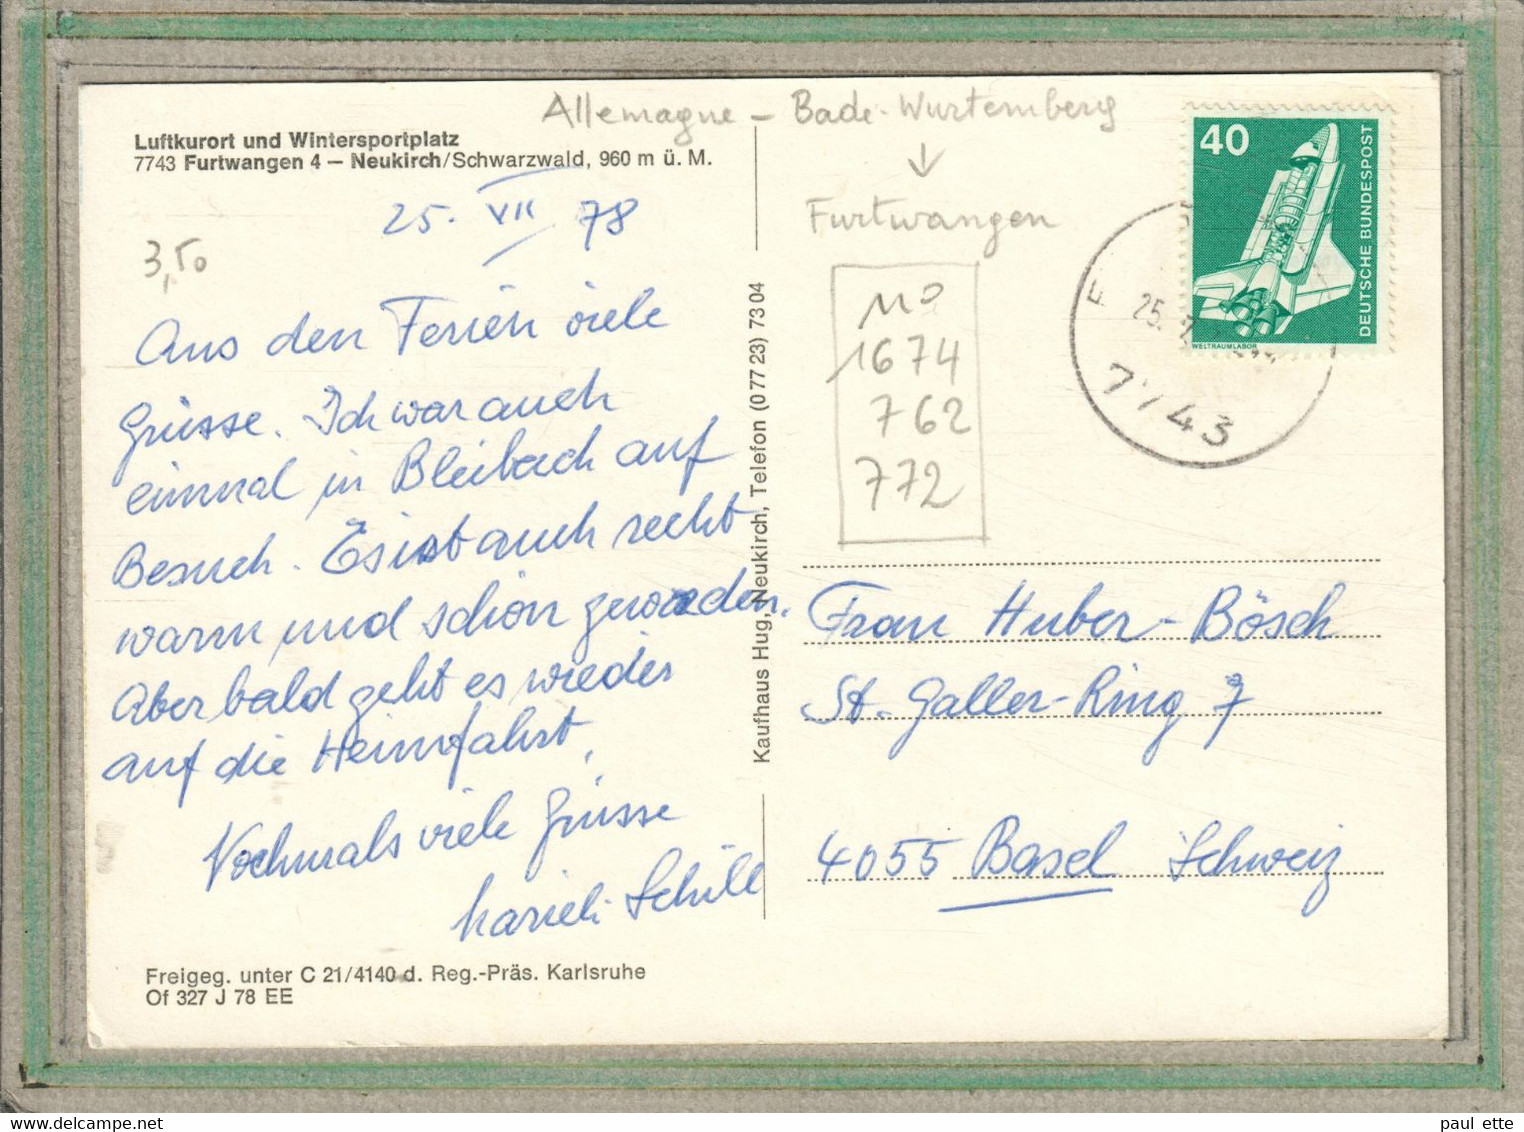 Allemagne – Bade-Wurtemberg
↓
Furtwangen
Luftkurort und Wintersportplatz
7743 Furtwangen 4 – Neukirch/Schwarzwald, 960 m ü. M.
25. VII 78
3,50
Aus den Ferien viele
Grüsse. Ich war auch
einmal in Bleibach auf
Besuch. Es ist auch recht
warm und schön geworden.
Aber bald geht es wieder
auf die Heimfahrt.
Nochmals viele Grüsse
Marieli Schill
Freigeg. unter C 21/4140 d. Reg.-Präs. Karlsruhe
Of 327 J 78 EE
Kaufhaus Hug, Neukirch, Telefon (0 77 23) 73 04
No
1674
762
772
40
DEUTSCHE BUNDESPOST
WELTRAUMLABOR
F
25.
7743
Frau Huber-Bösch
St. Galler-Ring 7
4055 Basel Schweiz
paul ette